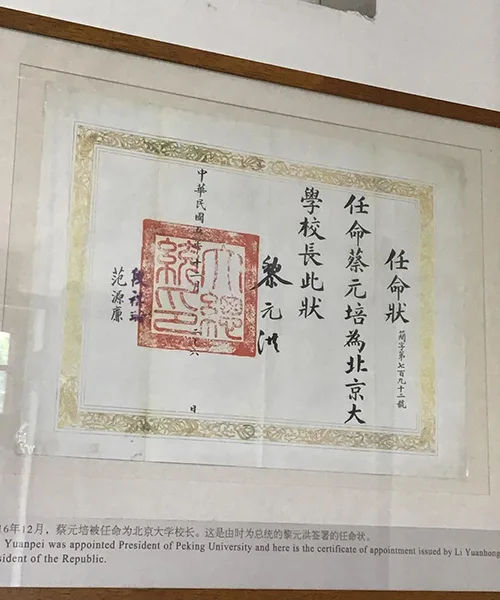 任命狀
簡字第七百九十三號
任命蔡元培為北京大
學校長此狀
黎元洪
大總統印
中華民國五年十 六 日
范源廉
16年12月，蔡元培被任命为北京大学校长。这是由时为总统的黎元洪签署的任命状。
Yuanpei was appointed President of Peking University and here is the certificate of appointment issued by Li Yuanhong
sident of the Republic.